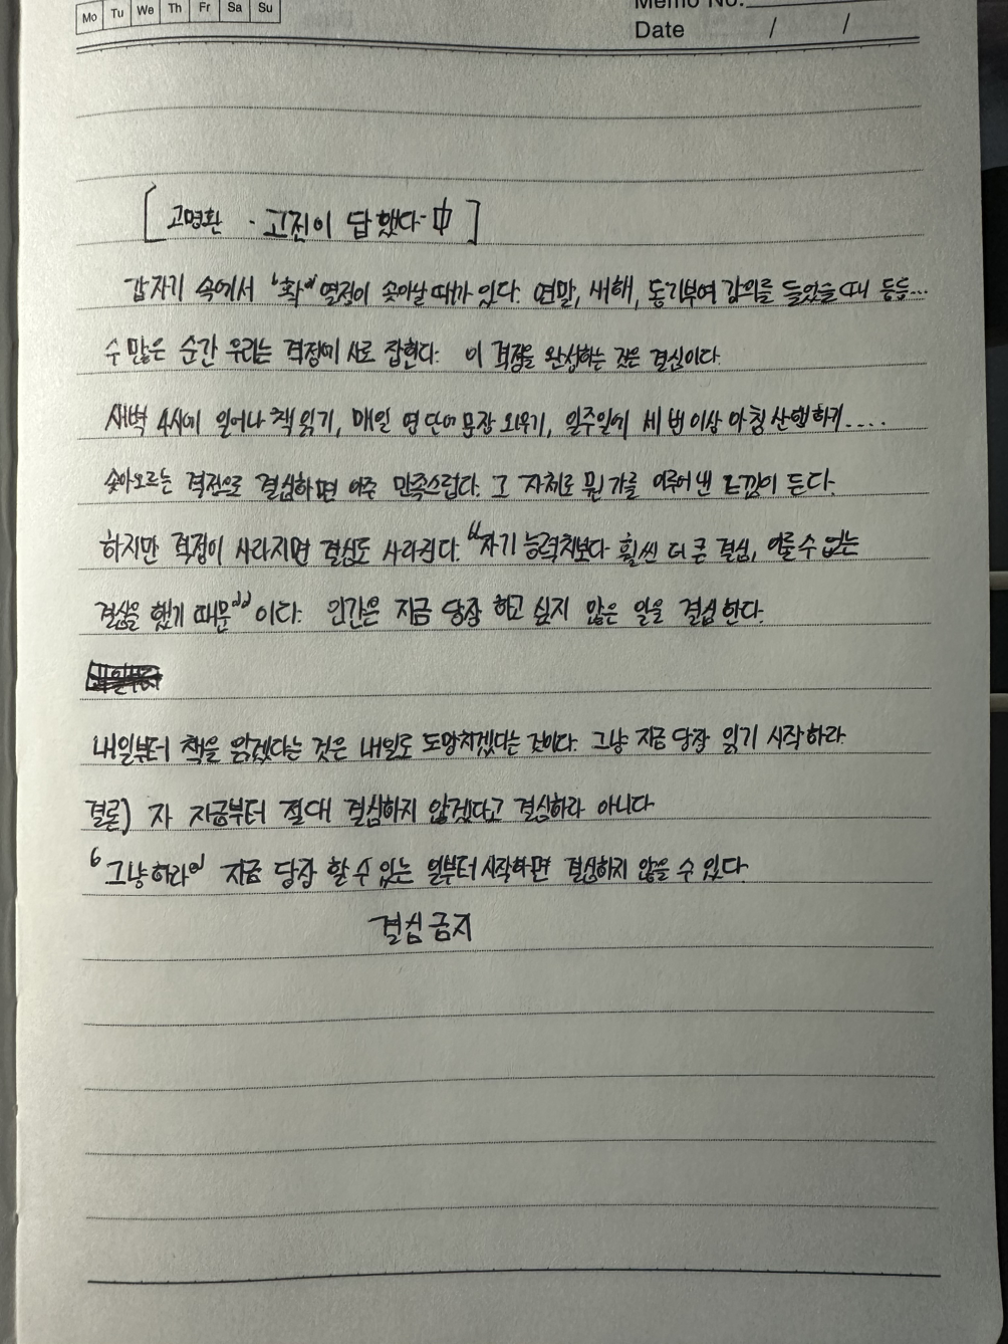 Mo Tu We Th Fr Sa Su
Memo No.
Date / /
[고명환 - 고전이 답했다 - 中]
갑자기 속에서 '확' 열정이 솟아날 때가 있다. 연말, 새해, 동기부여 강의를 들었을 때 등등...
수 많은 순간 우리는 격정에 사로 잡힌다. 이 격정을 완성하는 것은 결심이다.
새벽 4시에 일어나 책 읽기, 매일 영단어 문장 외우기, 일주일에 세 번 이상 아침 산행하기....
솟아오르는 격정으로 결심하면 아주 만족스럽다. 그 자체로 뭔가를 이루어 낸 느낌이 든다.
하지만 격정이 사라지면 결심도 사라진다. "자기 능력치보다 훨씬 더 큰 결심, 이룰 수 없는
결심을 했기 때문"이다. 인간은 지금 당장 하고 싶지 않은 일을 결심한다.
내일부터 책을 읽겠다는 것은 내일로 도망치겠다는 것이다. 그냥 지금 당장 읽기 시작하라.
결론) 자 지금부터 절대 결심하지 않겠다고 결심하라 아니다
'그냥 하라' 지금 당장 할 수 있는 일부터 시작하면 결심하지 않을 수 있다.
결심 금지